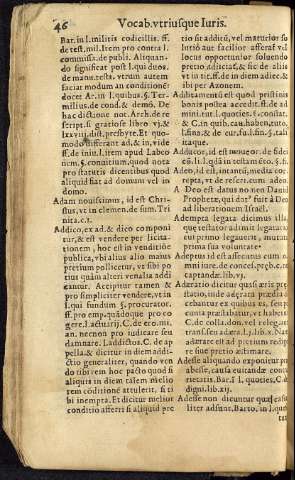 46 Vocab. vtriusque Iuris.
Bar. in l. militis codicillis. ff.
de test. mil. Item pro contra l.
commissa. de publi. Aliquan-
do significat post vt l. duos.
de manu. testa. vtrum autem
faciat modum an conditionē
docet Ar. in l. quibus. §. Ter-
milius. de cond. & demō. De
hac dictione not. Arch. de re
script. si gratiose libro vj. &
lxxviij. dist. presbyte. Et quo-
modo differant ad, & in, vide
ff. de iniu. l. item apud Labeo
nem. §. conuitium, quod nota
pro statutis dicentibus quod
aliquid fiat ad domum vel in
domo.
Adam nouissimus, id est Chris-
tus, vt in clemen. de sum. Tri
nita. c. 1.
Addico, ex ad & dico componi
tur, & est vendere per licita-
tionem, hoc est in venditione
publica, vbi alius alio maius
pretium pollicetur, vt sibi po
tius quàm alteri venalia addi-
cantur. Accipitur tamen &
pro simpliciter vendere, vt in
l. qui fundum. §. procurator.
ff. pro emp. quádoque pro co
gere l. acturij. C. de ero. mi.
an. necnon pro iudicare seu
damnare. l. addictos. C. de ap
pella. & dicitur in diem addi-
ctio generaliter, quando ven
do tibi rem hoc pacto quod si
aliquis in diem talem melio
rem cōditionē attulerit. si ti
bi inempta. Et dicitur melior
conditio afferri si aliquid pre
tio sit additū, vel maturior so
lutiō aut facilior afferat vel
locus opportunior soluendo
pretio eligetur, & sic de aliis
vt in tit. ff. de in diem adiec. &
ibi per Azonem.
Additamentū est quod pristinis
bonis postea accedit. ff. de ad
mini. tut. l. quoties. §. constat.
& C. in quib. cau. haben. cuto.
l. fina. & de cur. fu. l. fin. §. tali
itaque.
Adducor, id est moueor. de fidei
cū. l. l. qdā in testam ēto. §. fi.
Adeo, id est, inantum, medio cor
repta, vt de reser. cum adeo.
A Deo est datus no men Dauid
Prophetæ, qui datº fuit à Deo
ad liberationem Israel.
Adempta legata dicimus illa,
que testator adimit legatario
cui primo legauerit, mutata
prima sua voluntate.
Adeptus id est assecutus eum no
mini. vt de concess. præb. c. ne
captandæ. lib. vj.
Adæratio dicitur quæ sit æris præ
statio, inde adærari prædia di
cebantur ex quibus es, seu pe
cunia præstabatur, vt habetur
C. de collat. don. vel relegan.
transl. seu adæra. l. j. lib. x. Bar. t.
adærari est pretium reddere
siue pretio æstimare.
Adesse aliquando exponitur p.
abesse, causa euitandæ contra
rietatis. Bar. l. l. quoties. C. de
digni. lib. xij.
Adesse non dicuntur quia causæ
liter adsunt. Barto. in l. coram
tit